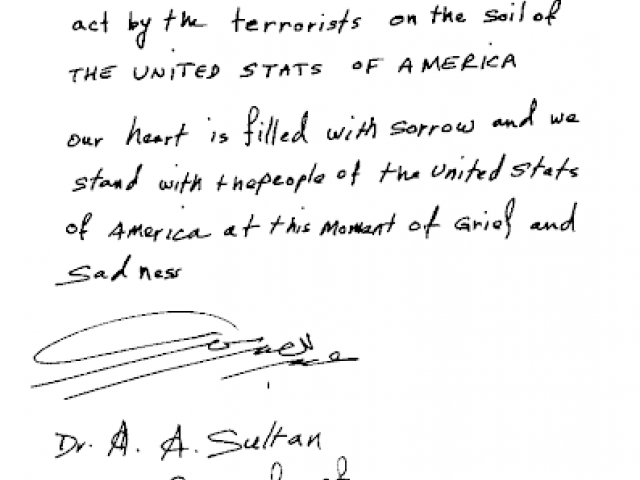 act by the terrorists on the soil of
THE UNITED STATS OF AMERICA
our heart is filled with sorrow and we
stand with thepeople of the united stats
of AMERICA at this Moment of Grief and
sadness
Dr. A. A. Sultan